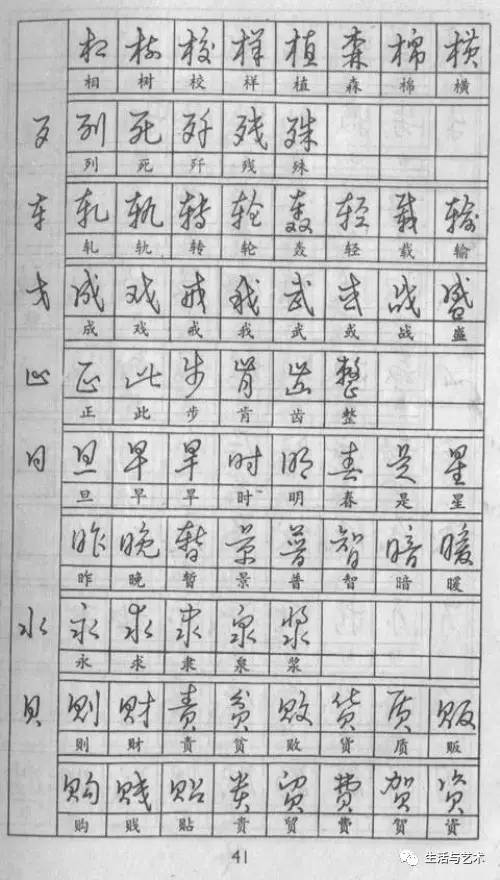 相 树 校 样 植 森 棉 横
相 树 校 样 植 森 棉 横
歹 列 死 歼 残 殊
列 死 歼 残 殊
车 轧 轨 转 轮 轰 轻 载 输
轧 轨 转 轮 轰 轻 载 输
戈 成 戏 戒 我 武 或 战 盛
成 戏 戒 我 武 或 战 盛
止 正 此 步 肯 齿 整
正 此 步 肯 齿 整
日 旦 早 旱 时 明 春 是 星
旦 早 旱 时 明 春 是 星
昨 晚 暂 景 普 智 暗 暖
昨 晚 暂 景 普 智 暗 暖
水 永 求 隶 泉 浆
永 求 隶 泉 浆
贝 则 财 责 贫 败 货 质 贩
则 财 责 贫 败 货 质 贩
购 贱 贴 贵 贸 费 贺 资
购 贱 贴 贵 贸 费 贺 资
41
生活与艺术